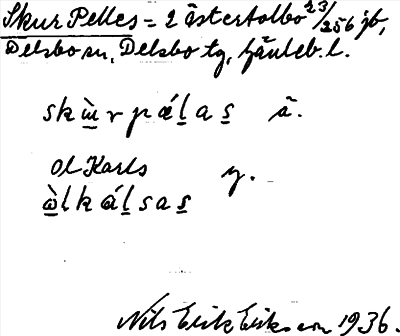 Skur Pelles = 2 Åstertolbo 23/256 jb,
Delsbo sn, Delsbo tg, Gävleb. l.
sku̱̇r pǽḻas̱ ä.
Ol Karls y.
ὼ̱lkáḻsas̱
Nils Erik Eriksson 1936.